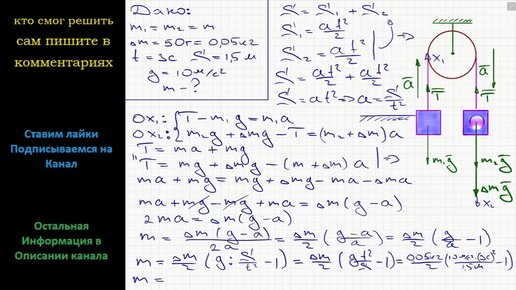 кто смог решить
сам пишите в
комментариях
Ставим лайки
Подписываемся на
Канал
Остальная
Информация в
Описании канала
Дано:
m₁ = m₂ = m
Δm = 50г = 0,05кг
t = 3с S = 1,5м
g = 10м/с²
m - ?
S = S₁ + S₂
S₁ = at²/2
S₂ = at²/2
S = at²/2 + at²/2
S = at² => a = S/t²
OX₁: {T - m₁g = m₁a
OX₂: {m₂g + Δmg - T = (m₂ + Δm)a
T = ma + mg
T = mg + Δmg - (m + Δm)a
ma + mg = mg + Δmg - ma - Δma
ma + mg - mg + ma = Δm(g - a)
2ma = Δm(g - a)
m = Δm(g - a)/2a = Δm/2 (g - a/a) = Δm/2 (g/a - 1)
m = Δm/2 (g : S/t² - 1) = Δm/2 (gt²/S - 1) = 0,05кг/2 (10м/с²·(3с)²/1,5м - 1)
m =
x₁
a
T
a
T
m₁g
m₂g
Δmg
x₂